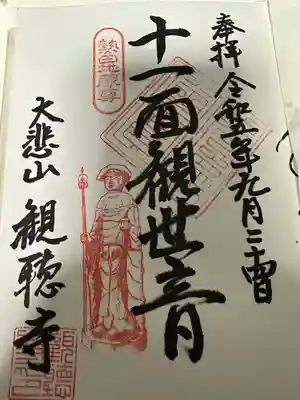 奉拝 令和五年九月二十四日
十一面観世音
大悲山 観聴寺